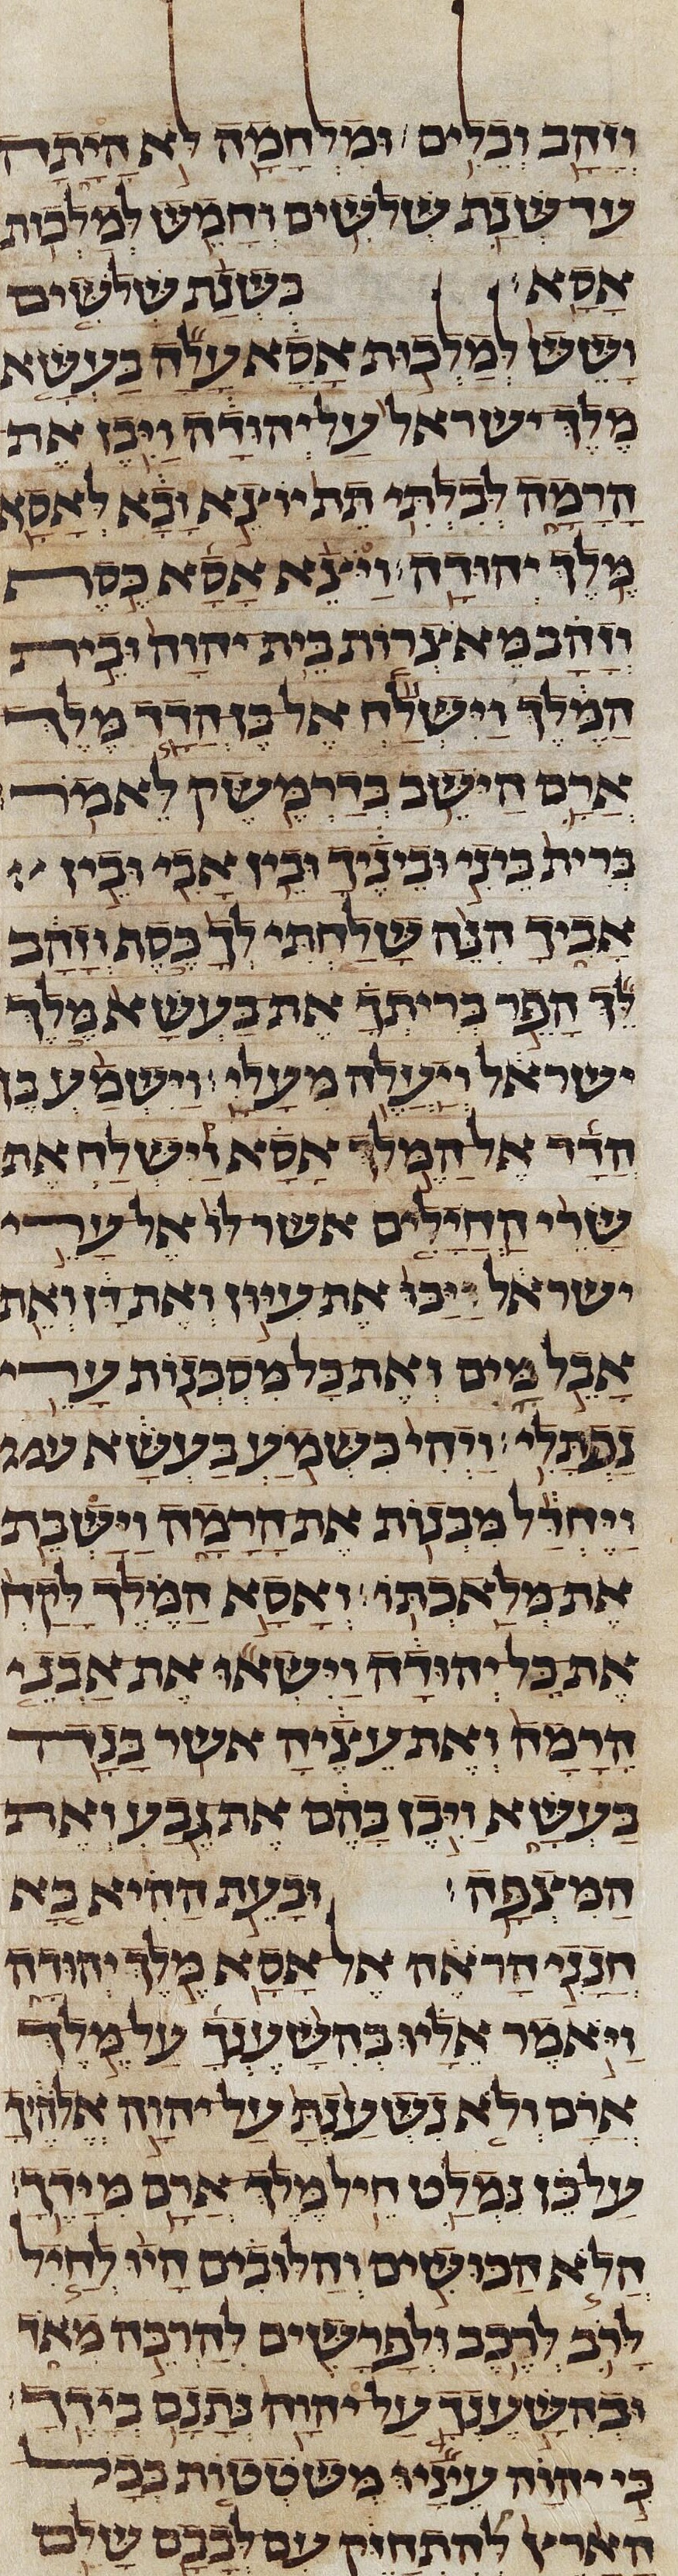 וזהב וכלים׃ ומלחמה לא היתה
עד שנת שלשים וחמש למלכות
אסא׃ בשנת שלשים
ושש למלכות אסא עלה בעשא
מלך ישראל על יהודה ויבן את
הרמה לבלתי תת יוצא ובא לאסא
מלך יהודה׃ ויצא אסא כסף
וזהב מאצרות בית יהוה ובית
המלך וישלח אל בן הדד מלך
ארם הישב בדרמשק לאמר׃
ברית ביני ובינך ובין אבי ובין
אביך הנה שלחתי לך כסף וזהב
לך הפר בריתך את בעשא מלך
ישראל ויעלה מעלי׃ וישמע בן
הדד אל המלך אסא וישלח את
שרי החילים אשר לו אל ערי
ישראל ויכו את עיון ואת דן ואת
אבל מים ואת כל מסכנות ערי
נפתלי׃ ויהי כשמע בעשא
ויחדל מבנות את הרמה וישבת
את מלאכתו׃ ואסא המלך לקח
את כל יהודה וישאו את אבני
הרמה ואת עציה אשר בנה
בעשא ויבן בהם את גבע ואת
המצפה׃ ובעת ההיא בא
חנני הראה אל אסא מלך יהודה
ויאמר אליו בהשענך על מלך
ארם ולא נשענת על יהוה אלהיך
על כן נמלט חיל מלך ארם מידך׃
הלא הכושים והלובים היו לחיל
לרב לרכב ולפרשים להרבה מאד
ובהשענך על יהוה נתנם בידך׃
כי יהוה עיניו משטטות בכל
הארץ להתחזק עם לבבם שלם